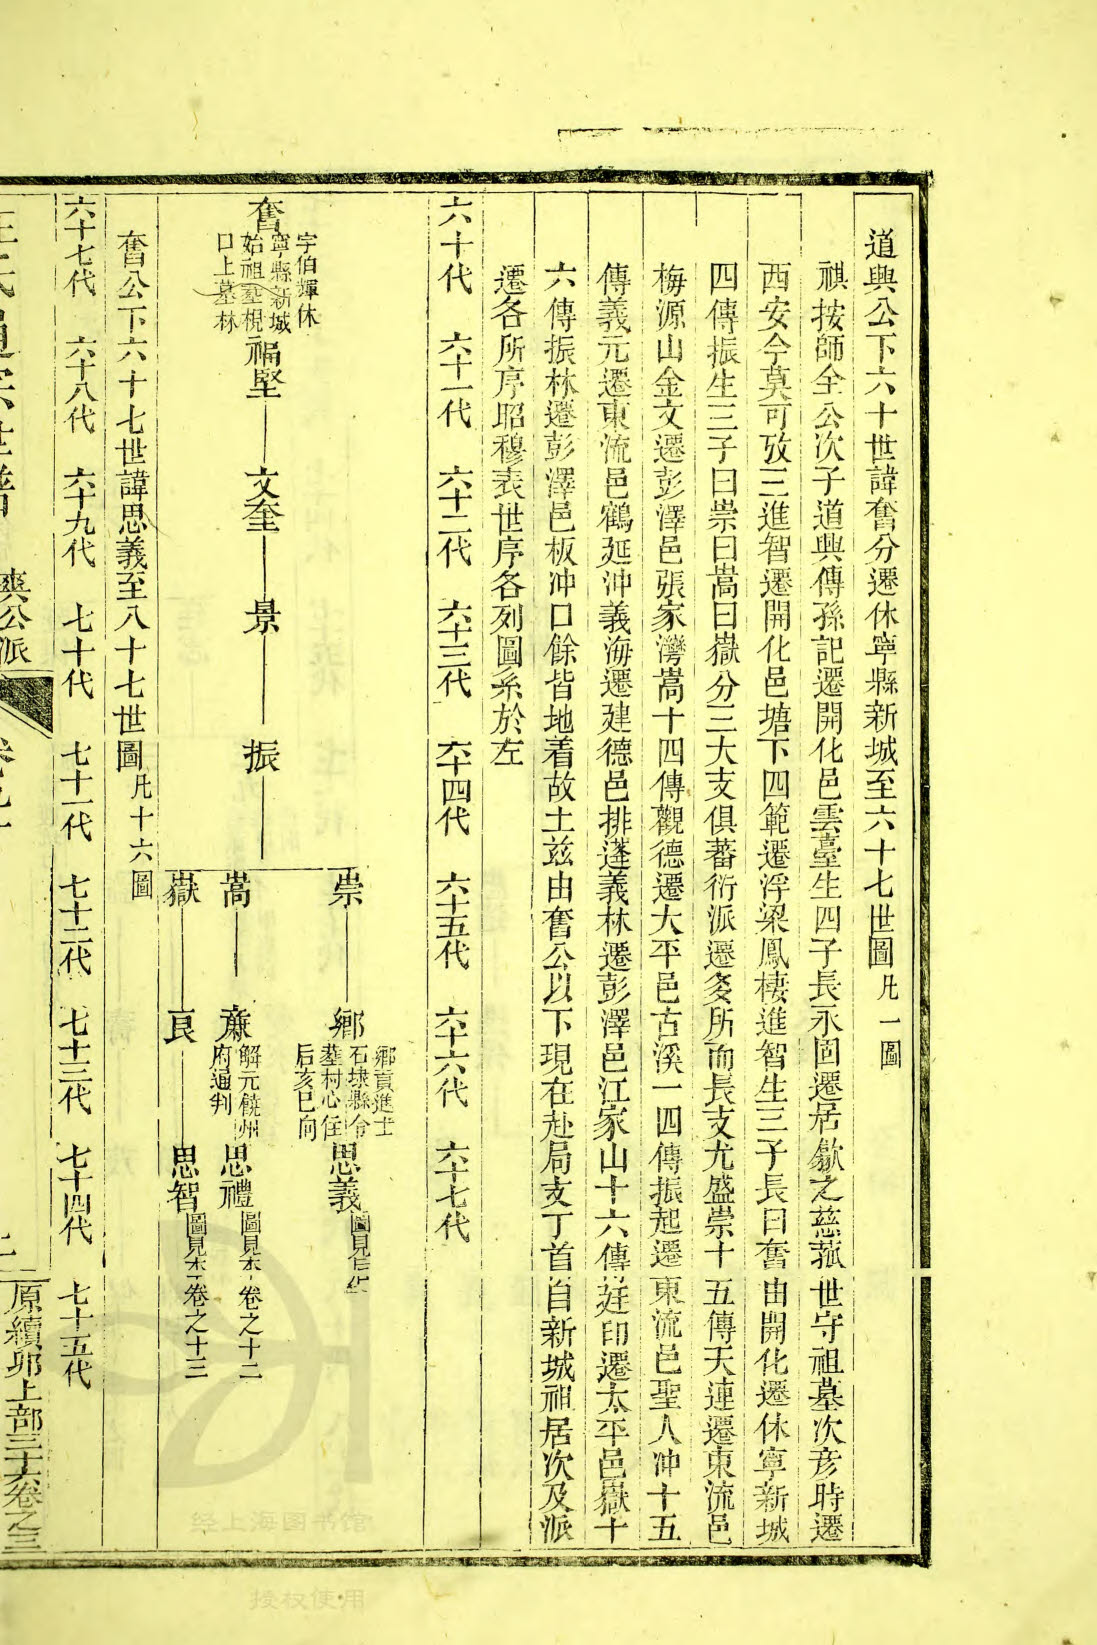 道興公下六十世諱奮分遷休寧縣新城至六十七世圖凡一圖
祺按師全公次子道興傳孫記遷開化邑雲臺生四子長永固遷居歙之慈菰世守祖墓次彥時遷
西安今莫可攷三進智遷開化邑塘下四範遷浮梁鳳棲進智生三子長曰奮由開化遷休寧新城
四傳振生三子曰崇曰嵩曰嶽分三大支俱蕃衍派遷多所而長支尤盛崇十五傳天連遷東流邑
梅源山金文遷彭澤邑張家灣嵩十四傳觀德遷大平邑古溪一四傳振起遷東流邑聖人冲十五
傳義元遷東流邑鶴延冲義海遷建德邑排蓬義林遷彭澤邑江家山十六傳廷印遷太平邑嶽十
六傳振林遷彭澤邑板冲口餘皆地着故土兹由奮公以下現在赴局支丁首自新城祖居次及派
遷各所序昭穆表世序各列圖系於左
六十代 六十一代 六十二代 六十三代 六十四代 六十五代 六十六代 六十七代
奮 字伯輝休寧縣新城始祖塟梘口上墓林 福堅 文奎 景 振
崇 鄉 鄉貢進士石埭縣令塟村心住后亥巳向 思義 圖見
嵩 廉 解元饒州府通判 思禮 圖見本卷之十二
嶽 良 思智 圖見本卷之十三
奮公下六十七世諱思義至八十七世圖凡十六圖
六十七代 六十八代 六十九代 七十代 七十一代 七十二代 七十三代 七十四代 七十五代
汪氏通宗世譜 爽公派 原續卯上部三十六卷之三
经上海图书馆
授权使用